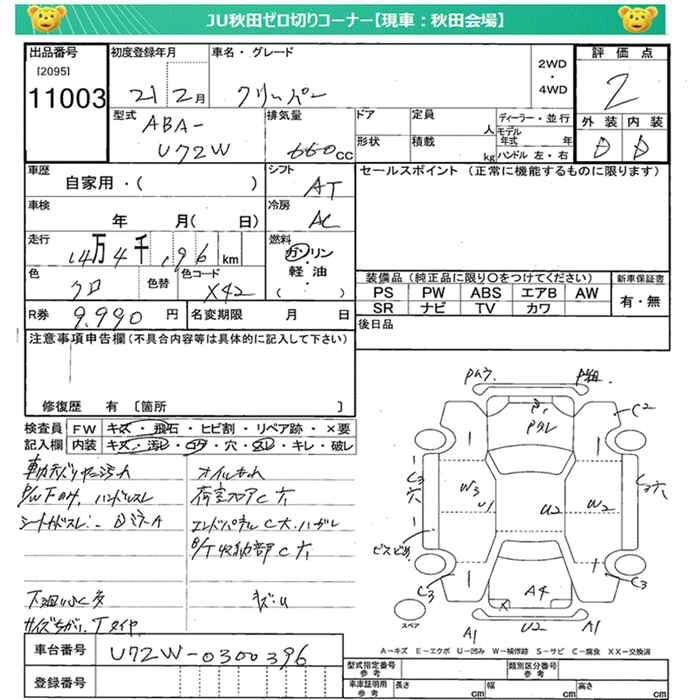 JU秋田ゼロ切りコーナー【現車：秋田会場】
出品番号
[2095]
11003
初度登録年月
21 2月
車名・グレード
クリッパー
2WD
・
4WD
評価点
2
外装 内装
D D
型式
ABA-
U72W
排気量
660cc
ドア
定員
人
形状
積載
kg
ディーラー・並行
モデル
年式 年
ハンドル 左・右
車歴
自家用・( )
シフト
AT
セールスポイント (正常に機能するものに限ります)
車検
年 月( 日)
冷房
AC
走行
14万4千196km
燃料
ガソリン
・
軽油
( )
色
クロ
色替
色コード
X42
装備品(純正品に限り○をつけてください)
PS PW ABS エアB AW
SR ナビ TV カワ
新車保証書
有・無
R券
9.990円
名変期限 月 日
後日品
注意事項申告欄(不具合内容等は具体的に記入して下さい)
修復歴 有 〔箇所 〕
検査員
記入欄
FW キズ・飛石・ヒビ割・リペア跡・×要
内装 キズ・汚レ・コゲ・穴・スレ・キレ・破レ
オイルもれ
荷室フロアC穴
下廻りふく多
キズ:U
サイズちがいTタイヤ
C2
1
1
C3
穴
C2穴
W3
U1
U2
W2
1
ビスどめ
C3
1
1
C3
A4
X
スペア
A1
U2
A1
A－キズ E－エクボ U－凹み W－補修跡 S－サビ C－腐食 XX－交換済
車台番号
U72W-0300396
登録番号
型式指定番号
参考
類別区分番号
参考
車庫証明用
参考
長さ cm
幅 cm
高さ cm